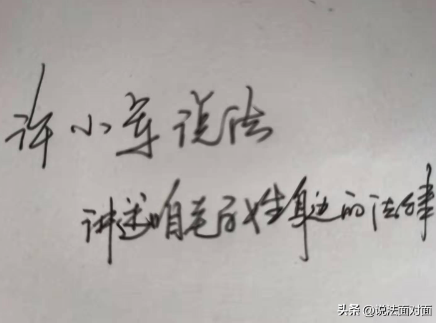 许小军说法
讲述咱老百姓身边的法律事
头条 @说法面对面